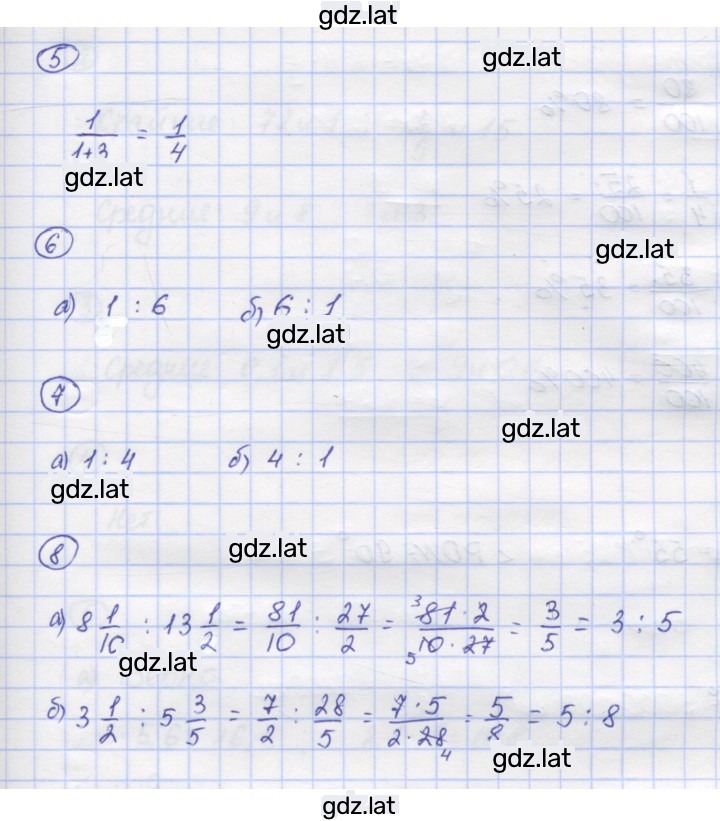 gdz.lat
5
gdz.lat
1/(1+3) = 1/4
gdz.lat
6
gdz.lat
а) 1 : 6 б) 6 : 1
gdz.lat
7
gdz.lat
а) 1 : 4 б) 4 : 1
gdz.lat
8
gdz.lat
а) 8 1/10 : 13 1/2 = 81/10 : 27/2 = 81·2/10·27 = 3/5 = 3 : 5
gdz.lat
б) 3 1/2 : 5 3/5 = 7/2 : 28/5 = 7·5/2·28 = 5/8 = 5 : 8
gdz.lat
gdz.lat